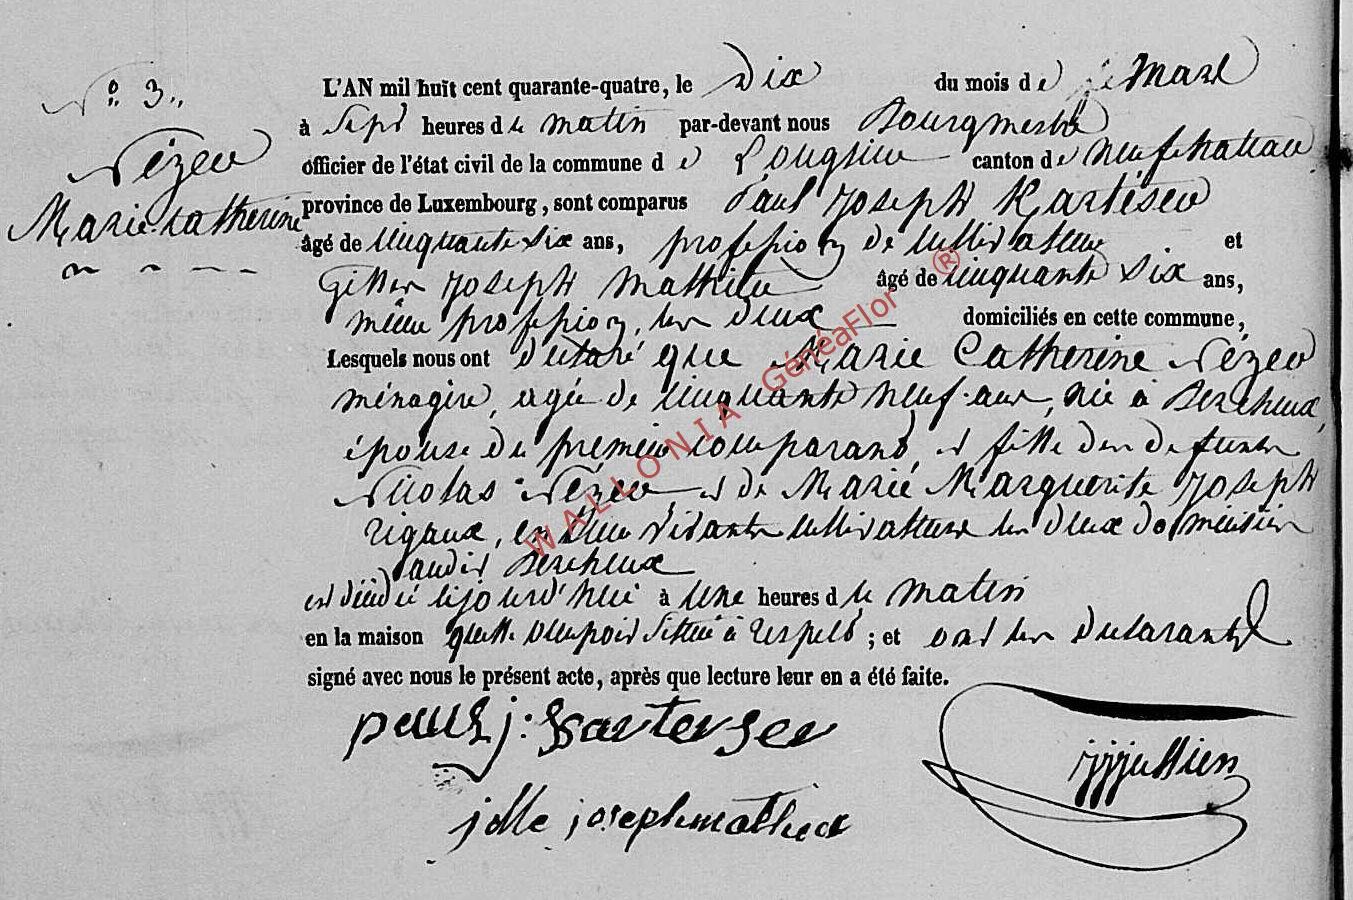 N° 3.
Nézeu
Marie-Catherine
L'AN mil huit cent quarante-quatre, le dix du mois de Mars
à sept heures du matin par-devant nous Bourgmestre
officier de l'état civil de la commune de canton de neufchateau
province de Luxembourg, sont comparus Paul Joseph
âgé de cinquante six ans, profession de cultivateur et
Gilles Joseph Mathieu âgé de cinquante six ans,
même profession, les deux domiciliés en cette commune,
Lesquels nous ont déclaré que Marie Catherine Nézeu
ménagère, agée de cinquante neuf ans, née à Bercheux,
épouse du prémier comparant, et fille des defunts
Nicolas Nézeu et de Marie Marguerite Joseph
Rigaux, en leur vivants cultivateurs les deux domiciliés
audit Bercheux
est décédée cejourd'hui à une heures du matin
en la maison quelle occupoit située à ; et ont les déclarants
signé avec nous le présent acte, après que lecture leur en a été faite.
paul j:
jille joseph mathieu
WALLONIA GénéaFlor ®